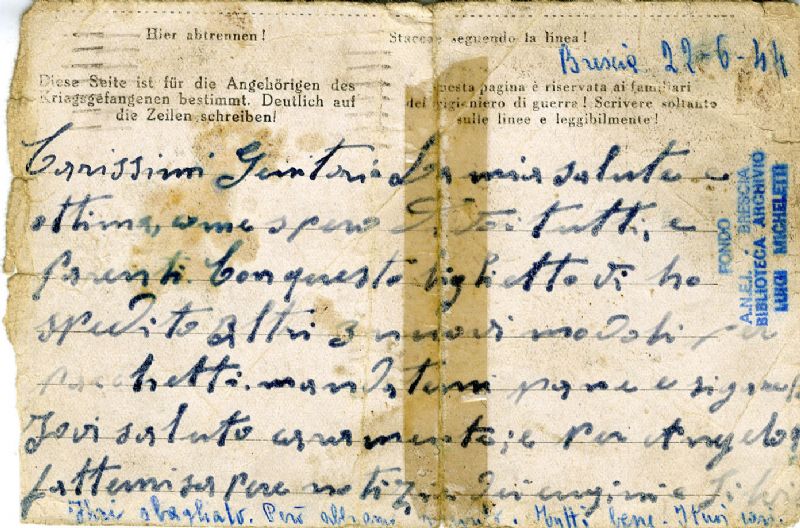 Hier abtrennen!
Staccare seguendo la linea!
Brescia 22-6-44
Diese Seite ist für die Angehörigen des
Kriegsgefangenen bestimmt. Deutlich auf
die Zeilen schreiben!
Questa pagina è riservata ai familiari
del prigioniero di guerra! Scrivere soltanto
sulle linee e leggibilmente!
Carissimi Genitori La mia salute e
ottima, come spero di voi tutti, e
parenti. Con questo biglietto vi ho
spedito altri 3 nuovi moduli per
pacchetti. mandatemi pane e
Io vi saluto caramente, e per Angelo
fattemi sapere notizie dei cugini e
sbagliato. Però Tutti bene.
FONDO
A.N.E.I. BRESCIA
BIBLIOTECA ARCHIVIO
LUIGI MICHELETTI